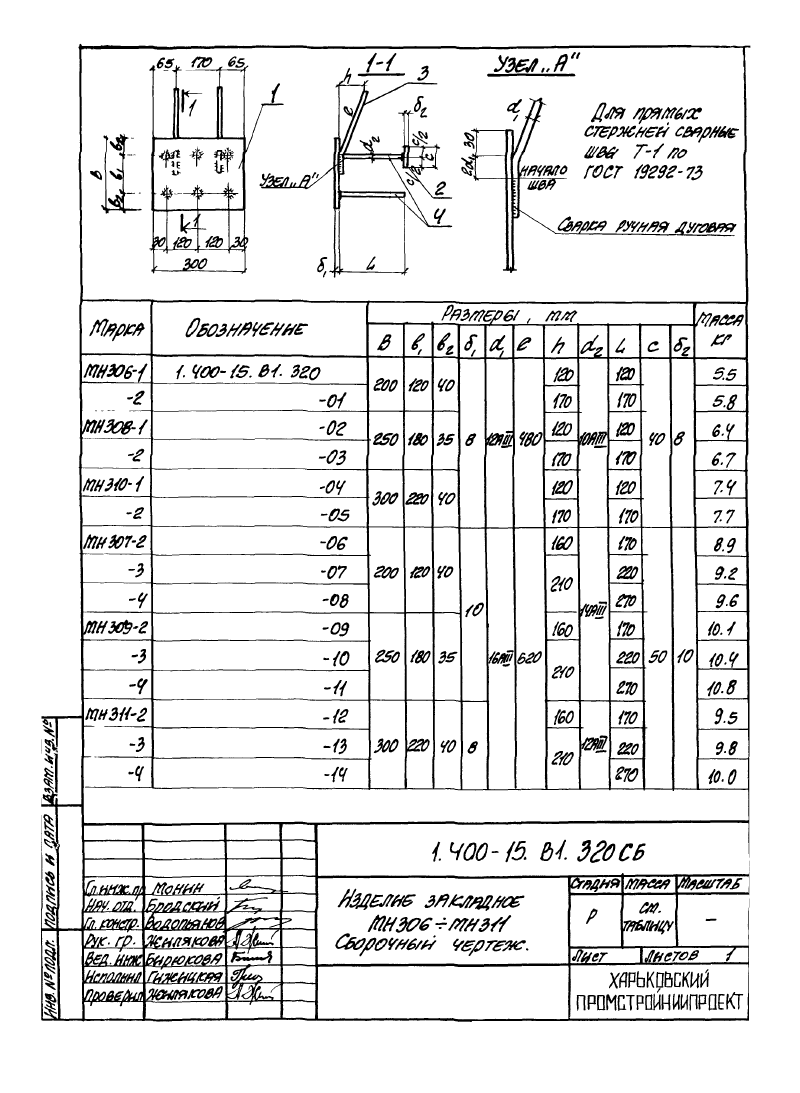 65 170 65
1
1
1
В
в2
в1
в2
30 120 120 30
300
1-1
h
3
е
δ2
d2
с/2
с/2
с
2
4
Узел „А"
δ1
L
Узел „А"
d1
30
2d1
Начало
шва
Сварка ручная дуговая
Для прямых
стержней сварные
швы Т-1 по
ГОСТ 19292-73
Марка Обозначение Размеры, мм Масса кг
В в1 в2 δ1 d1 е h d2 L с δ2
МН306-1 1.400-15.В1.320 200 120 40 8 12АIII 480 120 10АIII 120 40 8 5.5
-2 -01 170 170 5.8
МН308-1 -02 250 180 35 120 120 6.4
-2 -03 170 170 6.7
МН310-1 -04 300 220 40 120 120 7.4
-2 -05 170 170 7.7
МН307-2 -06 200 120 40 10 16АIII 620 160 14АIII 170 50 10 8.9
-3 -07 210 220 9.2
-4 -08 270 9.6
МН309-2 -09 250 180 35 160 170 10.1
-3 -10 210 220 10.4
-4 -11 270 10.8
МН311-2 -12 300 220 40 8 160 12АIII 170 9.5
-3 -13 210 220 9.8
-4 -14 270 10.0
Взам. инв. №
Подпись и дата
Инв. № подл.
1.400-15.В1.320СБ
Гл. инж. пр Монин
Нач. отд. Бродский
Гл. констр. Водопьянов
Рук. гр. Жилякова
Вед. инж Бирюкова
Исполнил Гижицкая
Проверил Жилякова
Изделие закладное
МН306÷МН311
Сборочный чертеж.
Стадия Масса Масштаб
Р см. таблицу —
Лист Листов 1
ХАРЬКОВСКИЙ
ПРОМСТРОЙНИИПРОЕКТ